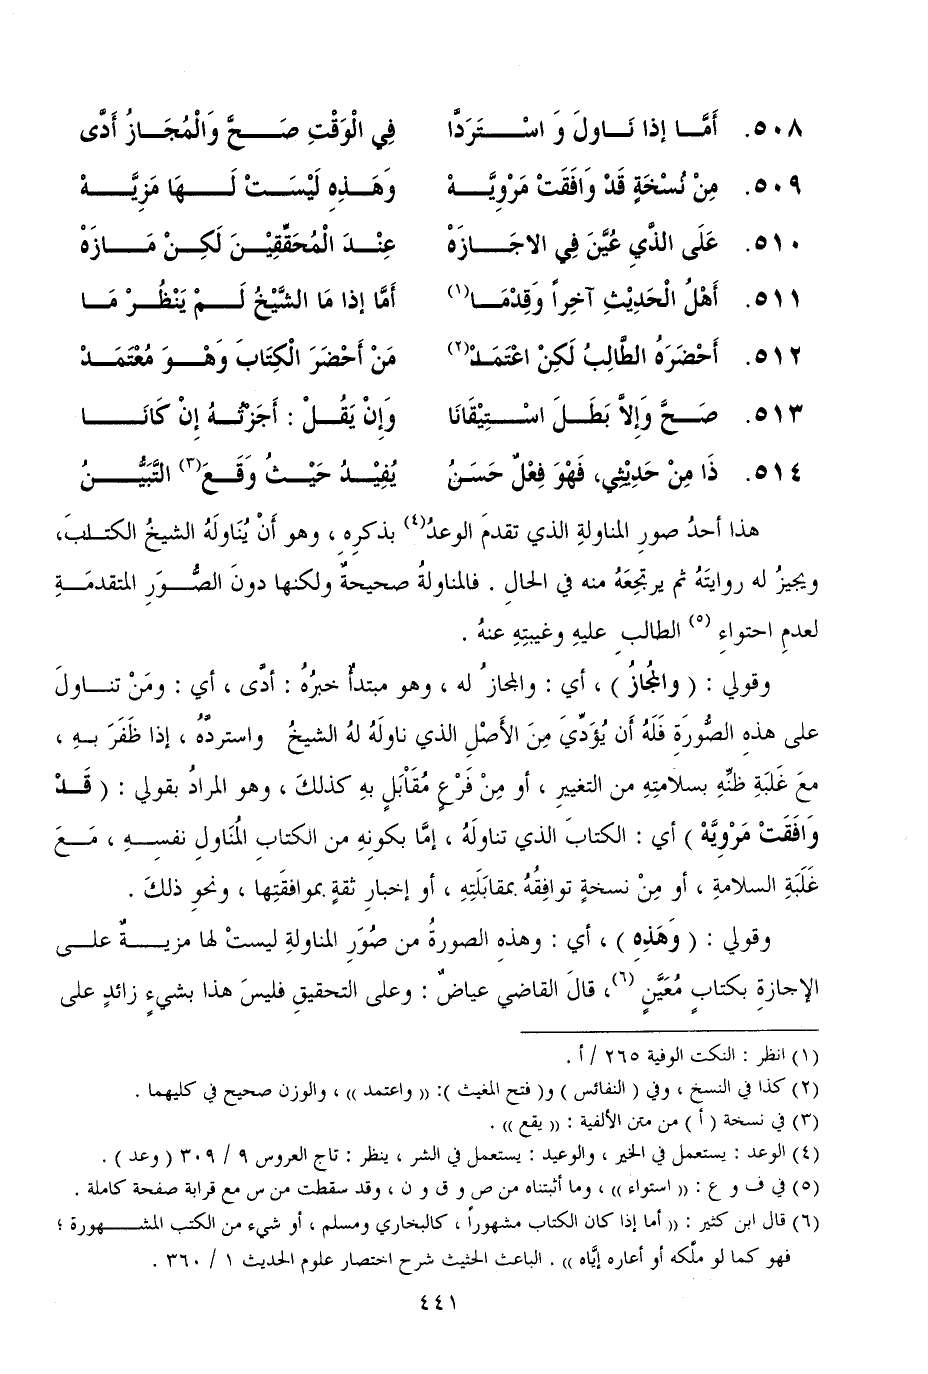 ٥٠٨. أَمَّا إذا نَاولَ وَاسْتَرَدَّا في الْوَقْتِ صَحَّ وَالْمُجَازُ أَدَّى
٥٠٩. مِنْ نُسْخَةٍ قَدْ وَافَقَتْ مَرْوِيَّهْ وَهَذِهِ لَيْسَتْ لَهَا مَزِيَّهْ
٥١٠. عَلَى الذَّيِ عُيِّنَ فِي الاجَازَهْ عِنْدَ الْمُحَقِّقِيْنَ لَكِنْ مَازَهْ
٥١١. أَهْلُ الْحَدِيْثِ آخِراً وَقِدْمَا(١) أَمَّا إذا مَا الشَّيْخُ لَمْ يَنْظُرْ مَا
٥١٢. أَحْضَرَهُ الطَّالِبُ لَكِنْ اعْتَمَدْ(٢) مَنْ أَحْضَرَ الْكِتَابَ وَهْوَ مُعْتَمَدْ
٥١٣. صَحَّ وَإلاَّ بَطَلَ اسْتِيْقَانَا وَإنْ يَقُلْ : أَجَزْتُهُ إنْ كَانَا
٥١٤. ذَا مِنْ حَدِيْثِي، فَهْوَ فِعْلٌ حَسَنُ يُفِيْدُ حَيْثُ وَقَعَ(٣) التَّبَيُّنُ
هذا أحدُ صورِ المناولةِ الذي تقدمَ الوعدُ(٤) بذكرِهِ ، وهو أَنْ يُنَاولَهُ الشيخُ الكتابَ،
ويجيزُ له روايتَهُ ثم يرتجعَهُ منه في الحالِ . فالمناولةُ صحيحةٌ ولكنها دونَ الصُّوَرِ المتقدمَةِ
لعدمِ احتواءِ (٥) الطالبِ عليهِ وغيبتِهِ عنهُ .
وقولي : ( والمُجازُ ) ، أي : والمجازُ له ، وهو مبتدأٌ خبرُهُ : أدَّى ، أي : ومَنْ تناولَ
على هذهِ الصُّورَةِ فَلَهُ أن يُؤَدِّيَ مِنَ الأصْلِ الذي ناولَهُ لهُ الشيخُ واستردَّهُ ، إذا ظَفَرَ بِهِ ،
معَ غَلَبَةِ ظنِّهِ بسلامتِهِ من التغييرِ ، أو مِنْ فَرْعٍ مُقَابَلٍ بهِ كذلكَ ، وهو المرادُ بقولي : ( قَدْ
وَافَقَتْ مَرْوِيَّهْ ) أي : الكتابَ الذي تناولَهُ ، إمَّا بكونِهِ من الكتابِ المُنَاولِ نفسِهِ ، مَعَ
غَلَبَةِ السلامةِ ، أو مِنْ نسخةٍ توافِقُهُ بمقابَلَتِهِ ، أو إخبارِ ثقةٍ بموافقتِها ، ونحوِ ذلكَ .
وقولي : ( وَهَذِهِ ) ، أي : وهذهِ الصورةُ من صُوَرِ المناولةِ ليستْ لها مزيةٌ على
الإجازةِ بكتابٍ مُعَيَّنٍ (٦)، قالَ القاضي عياضٌ : وعلى التحقيقِ فليسَ هذا بشيءٍ زائدٍ على
(١) انظر : النكت الوفية ٢٦٥ / أ .
(٢) كذا في النسخ ، وفي ( النفائس ) و( فتح المغيث ): (( واعتمد )) ، والوزن صحيح في كليهما .
(٣) في نسخة ( أ ) من متن الألفية : (( يقع )) .
(٤) الوعد : يستعمل في الخير ، والوعيد : يستعمل في الشر ، ينظر : تاج العروس ٩ / ٣٠٩ ( وعد ) .
(٥) في ف و ع : (( استواء )) ، وما أثبتناه من ص و ق و ن ، وقد سقطت من س مع قرابة صفحة كاملة .
(٦) قال ابن كثير : (( أما إذا كان الكتاب مشهوراً ، كالبخاري ومسلم ، أو شيء من الكتب المشهورة ؛
فهو كما لو ملّكه أو أعاره إيَّاه )) . الباعث الحثيث شرح اختصار علوم الحديث ١ / ٣٦٠ .
٤٤١